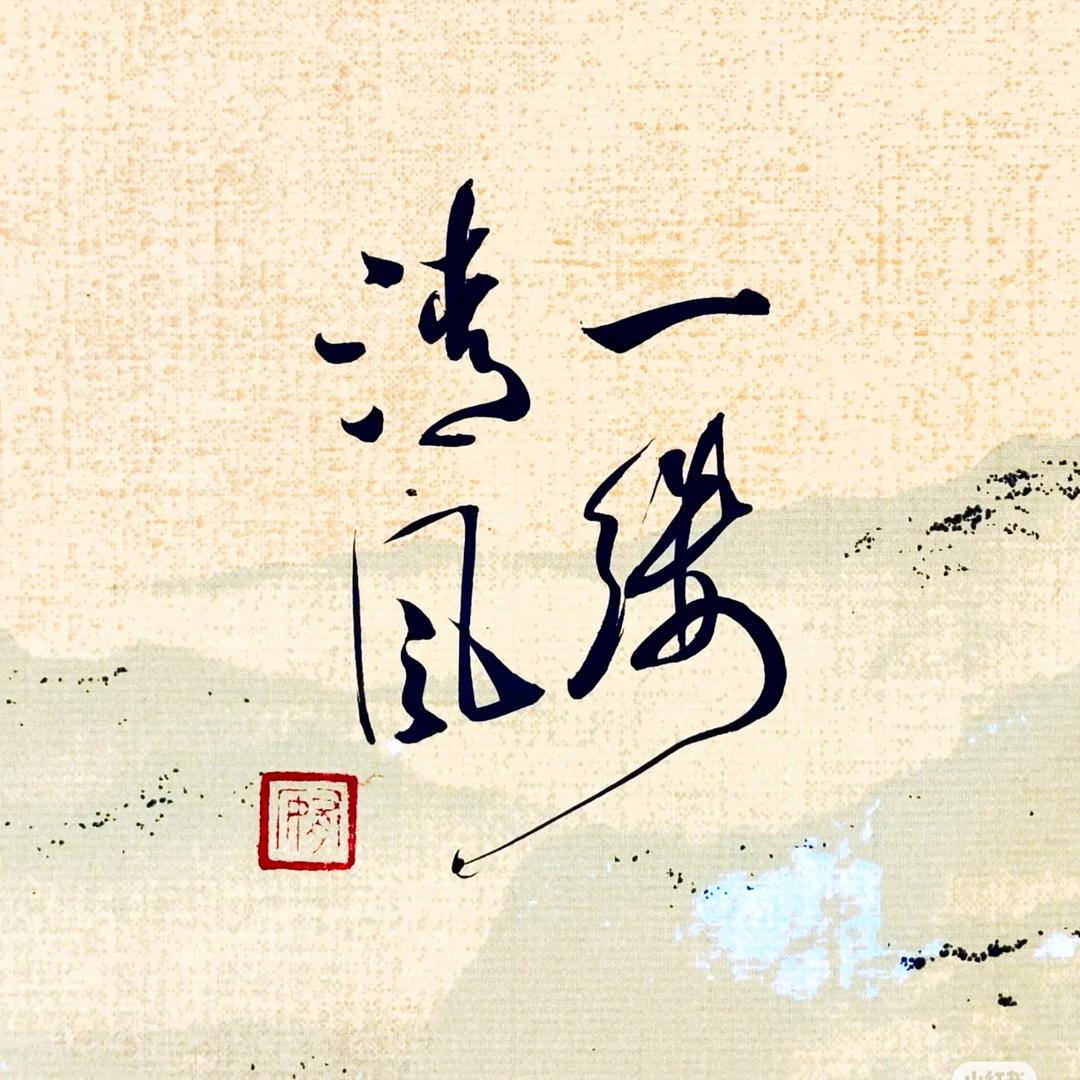 一缕
清风